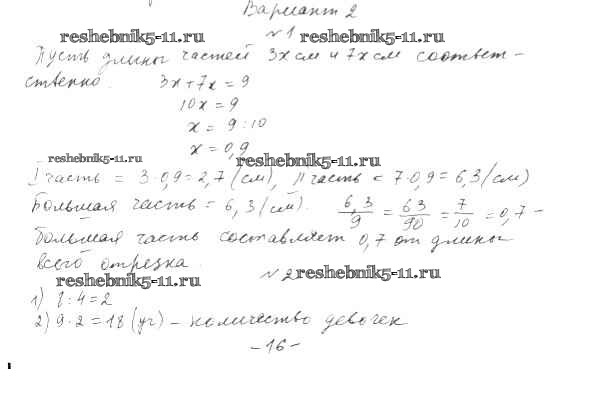 Вариант 2
reshebnik5-11.ru №1 reshebnik5-11.ru
Пусть длины частей 3x см и 7x см соответ-
ственно. 3x+7x=9
10x=9
x= 9:10
x=0,9
reshebnik5-11.ru reshebnik5-11.ru
I часть = 3·0,9=2,7(см), II часть = 7·0,9=6,3(см)
Большая часть = 6,3(см). 6,3/9 = 63/90 = 7/10 = 0,7 -
большая часть составляет 0,7 от длины
всего отрезка.
reshebnik5-11.ru №2 reshebnik5-11.ru
1) 8:4=2
2) 9·2=18(уч) - количество девочек
-16-